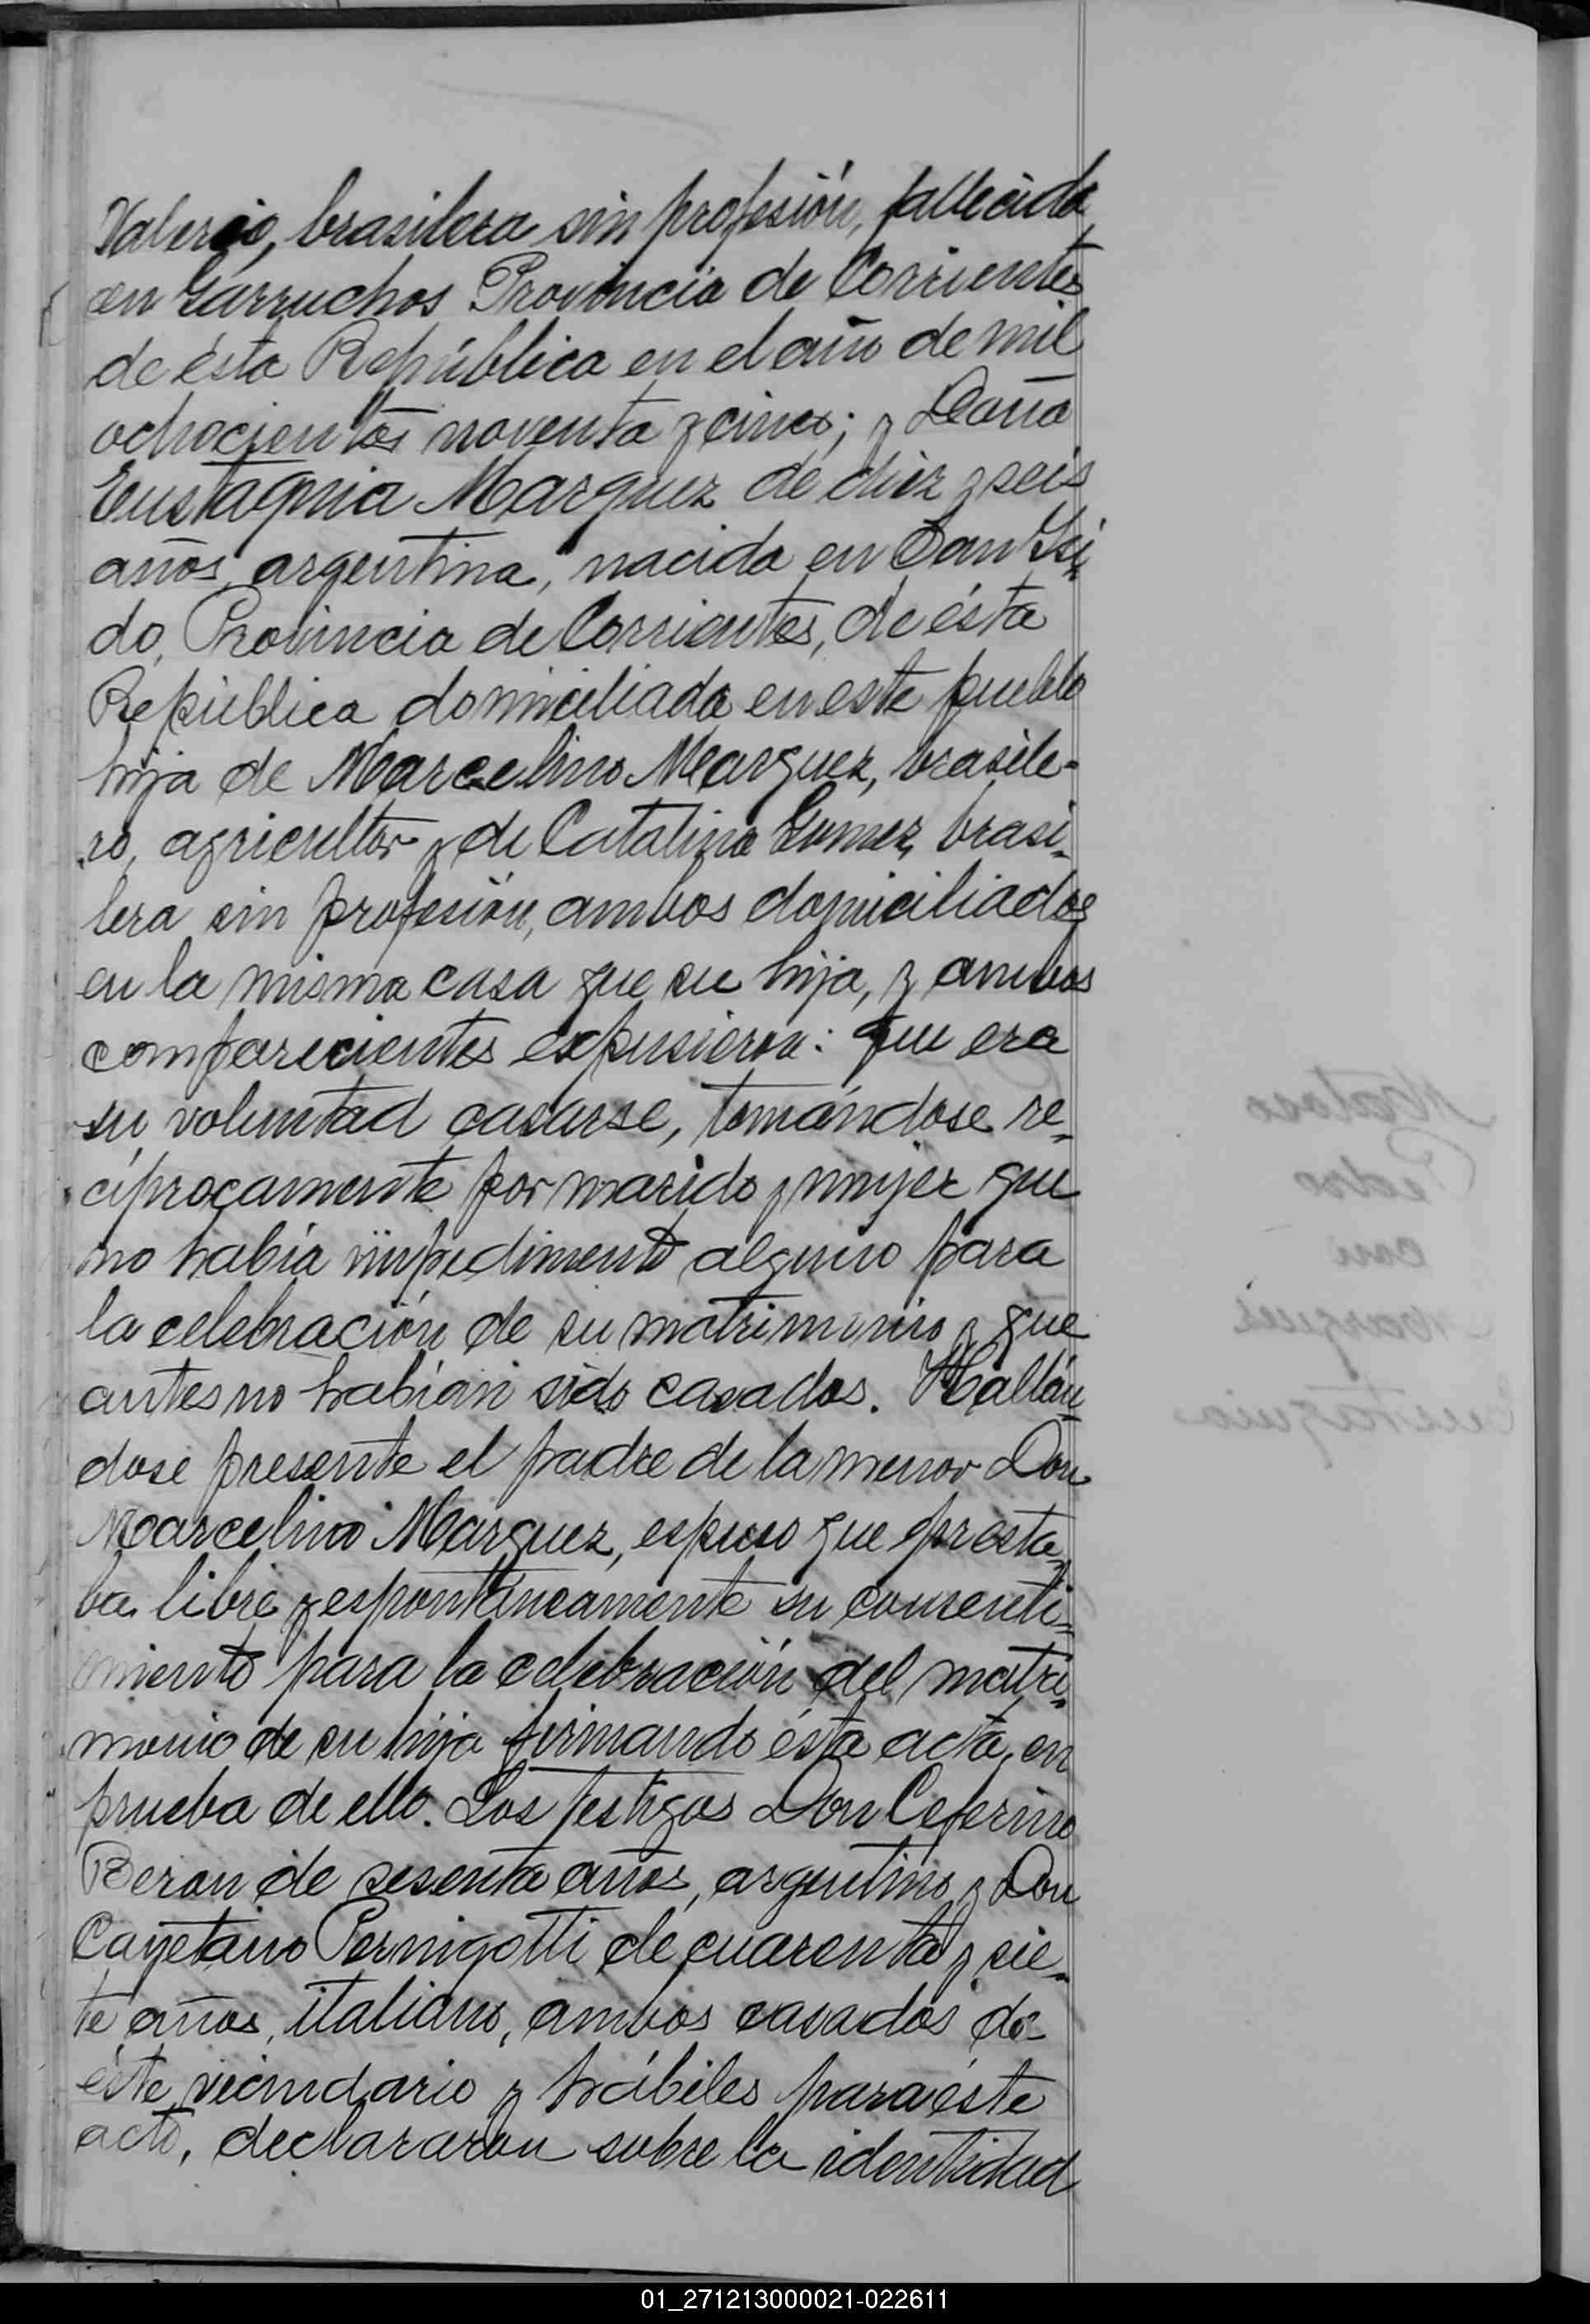 Valerio, brasilera sin profesión, fallecida
en Garruchos Provincia de Corrientes
de ésta República en el año de mil
ochocientos noventa y cinco; y Doña
Eustaquia Marquez de diez y seis
años, argentina, nacida en San Isi-
do, Provincia de Corrientes, de ésta
República domiciliada en este pueblo
hija de Marcelino Marquez, brasile-
ro, agricultor y de Catalina Gomez, brasi-
lera sin profesión, ambos domiciliados
en la misma casa que su hija, y ambos
comparecientes expusieron: que era
su voluntad casarse, tomándose re-
ciprocamente por marido y mujer que
no había impedimento alguno para
la celebración de su matrimonio y que
antes no habían sido casados. Hallán-
dose presente el padre de la menor Don
Marcelino Marquez, espuso que presta-
ba libre y espontáneamente su consenti-
miento para la celebración del matri-
monio de su hija firmando ésta acta, en
prueba de ello. Los testigos Don Ceferino
Beron de sesenta años, argentino y Don
Cayetano Pernigotti de cuarenta y sie-
te años, italiano, ambos casados de
éste vecindario y hábiles para éste
acto, declararon sobre la identidad
01_271213000021-022611